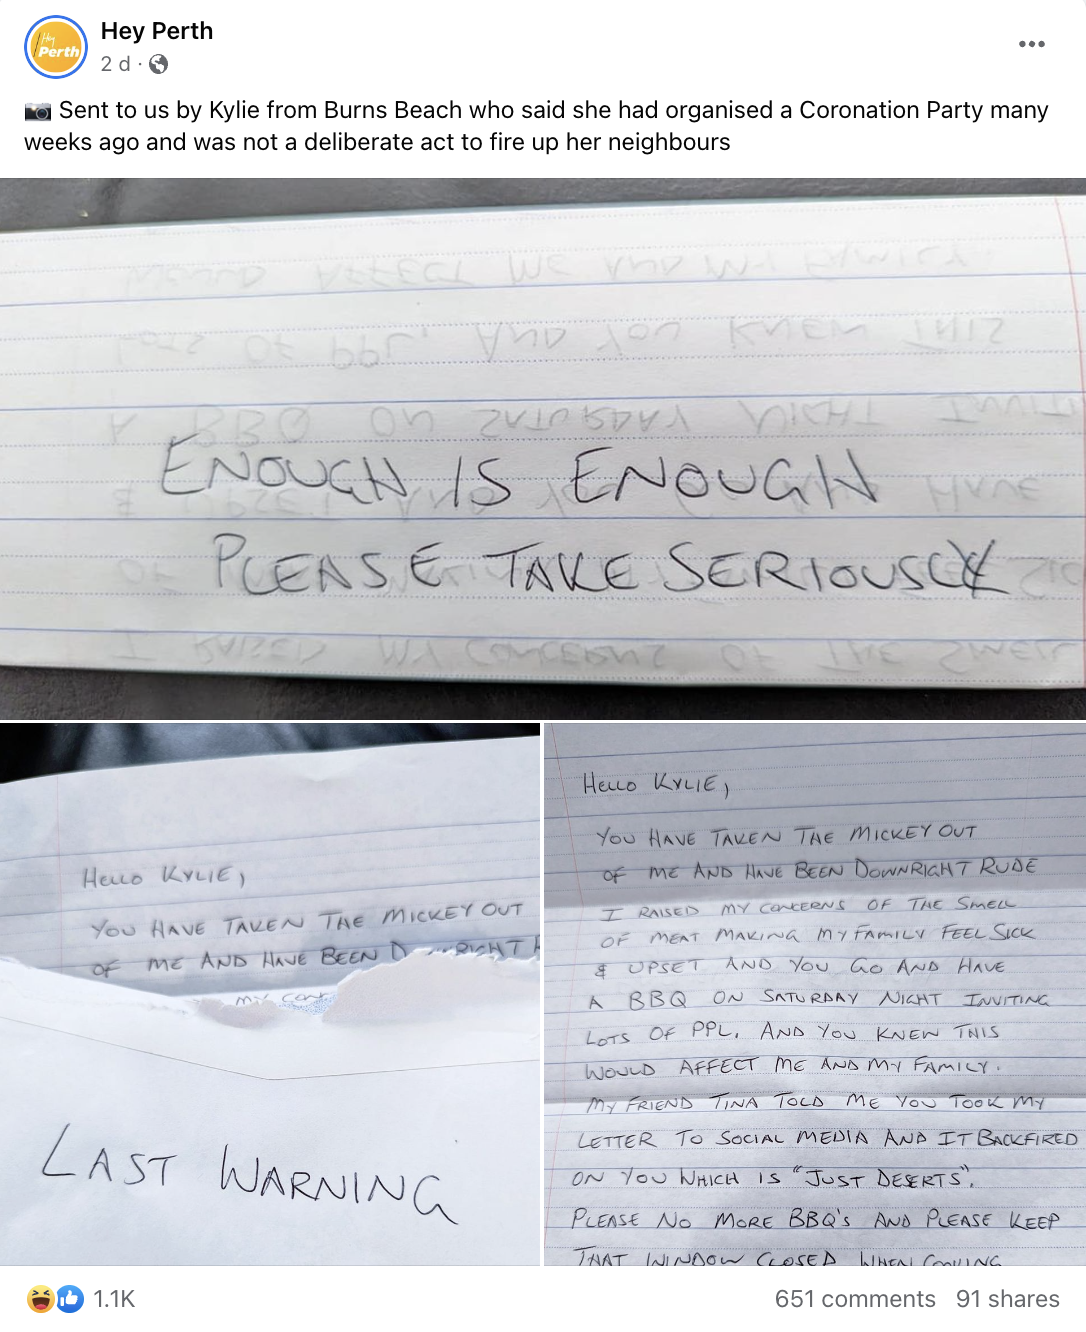 Hey Perth
Hey
Perth
2 d ·
Sent to us by Kylie from Burns Beach who said she had organised a Coronation Party many
weeks ago and was not a deliberate act to fire up her neighbours
ENOUGH IS ENOUGH
PLEASE TAKE SERIOUSLY
HELLO KYLIE,
YOU HAVE TAKEN THE MICKEY OUT
OF ME AND HAVE BEEN
MY
LAST WARNING
HELLO KYLIE,
YOU HAVE TAKEN THE MICKEY OUT
OF ME AND HAVE BEEN DOWNRIGHT RUDE
I RAISED MY CONCERNS OF THE SMELL
OF MEAT MAKING MY FAMILY FEEL SICK
& UPSET AND YOU GO AND HAVE
A BBQ ON SATURDAY NIGHT INVITING
LOTS OF PPL. AND YOU KNEW THIS
WOULD AFFECT ME AND MY FAMILY.
MY FRIEND TINA TOLD ME YOU TOOK MY
LETTER TO SOCIAL MEDIA AND IT BACKFIRED
ON YOU WHICH IS "JUST DESERTS".
PLEASE NO MORE BBQ'S AND PLEASE KEEP
THAT WINDOW CLOSED WHEN COOKING
1.1K
651 comments 91 shares